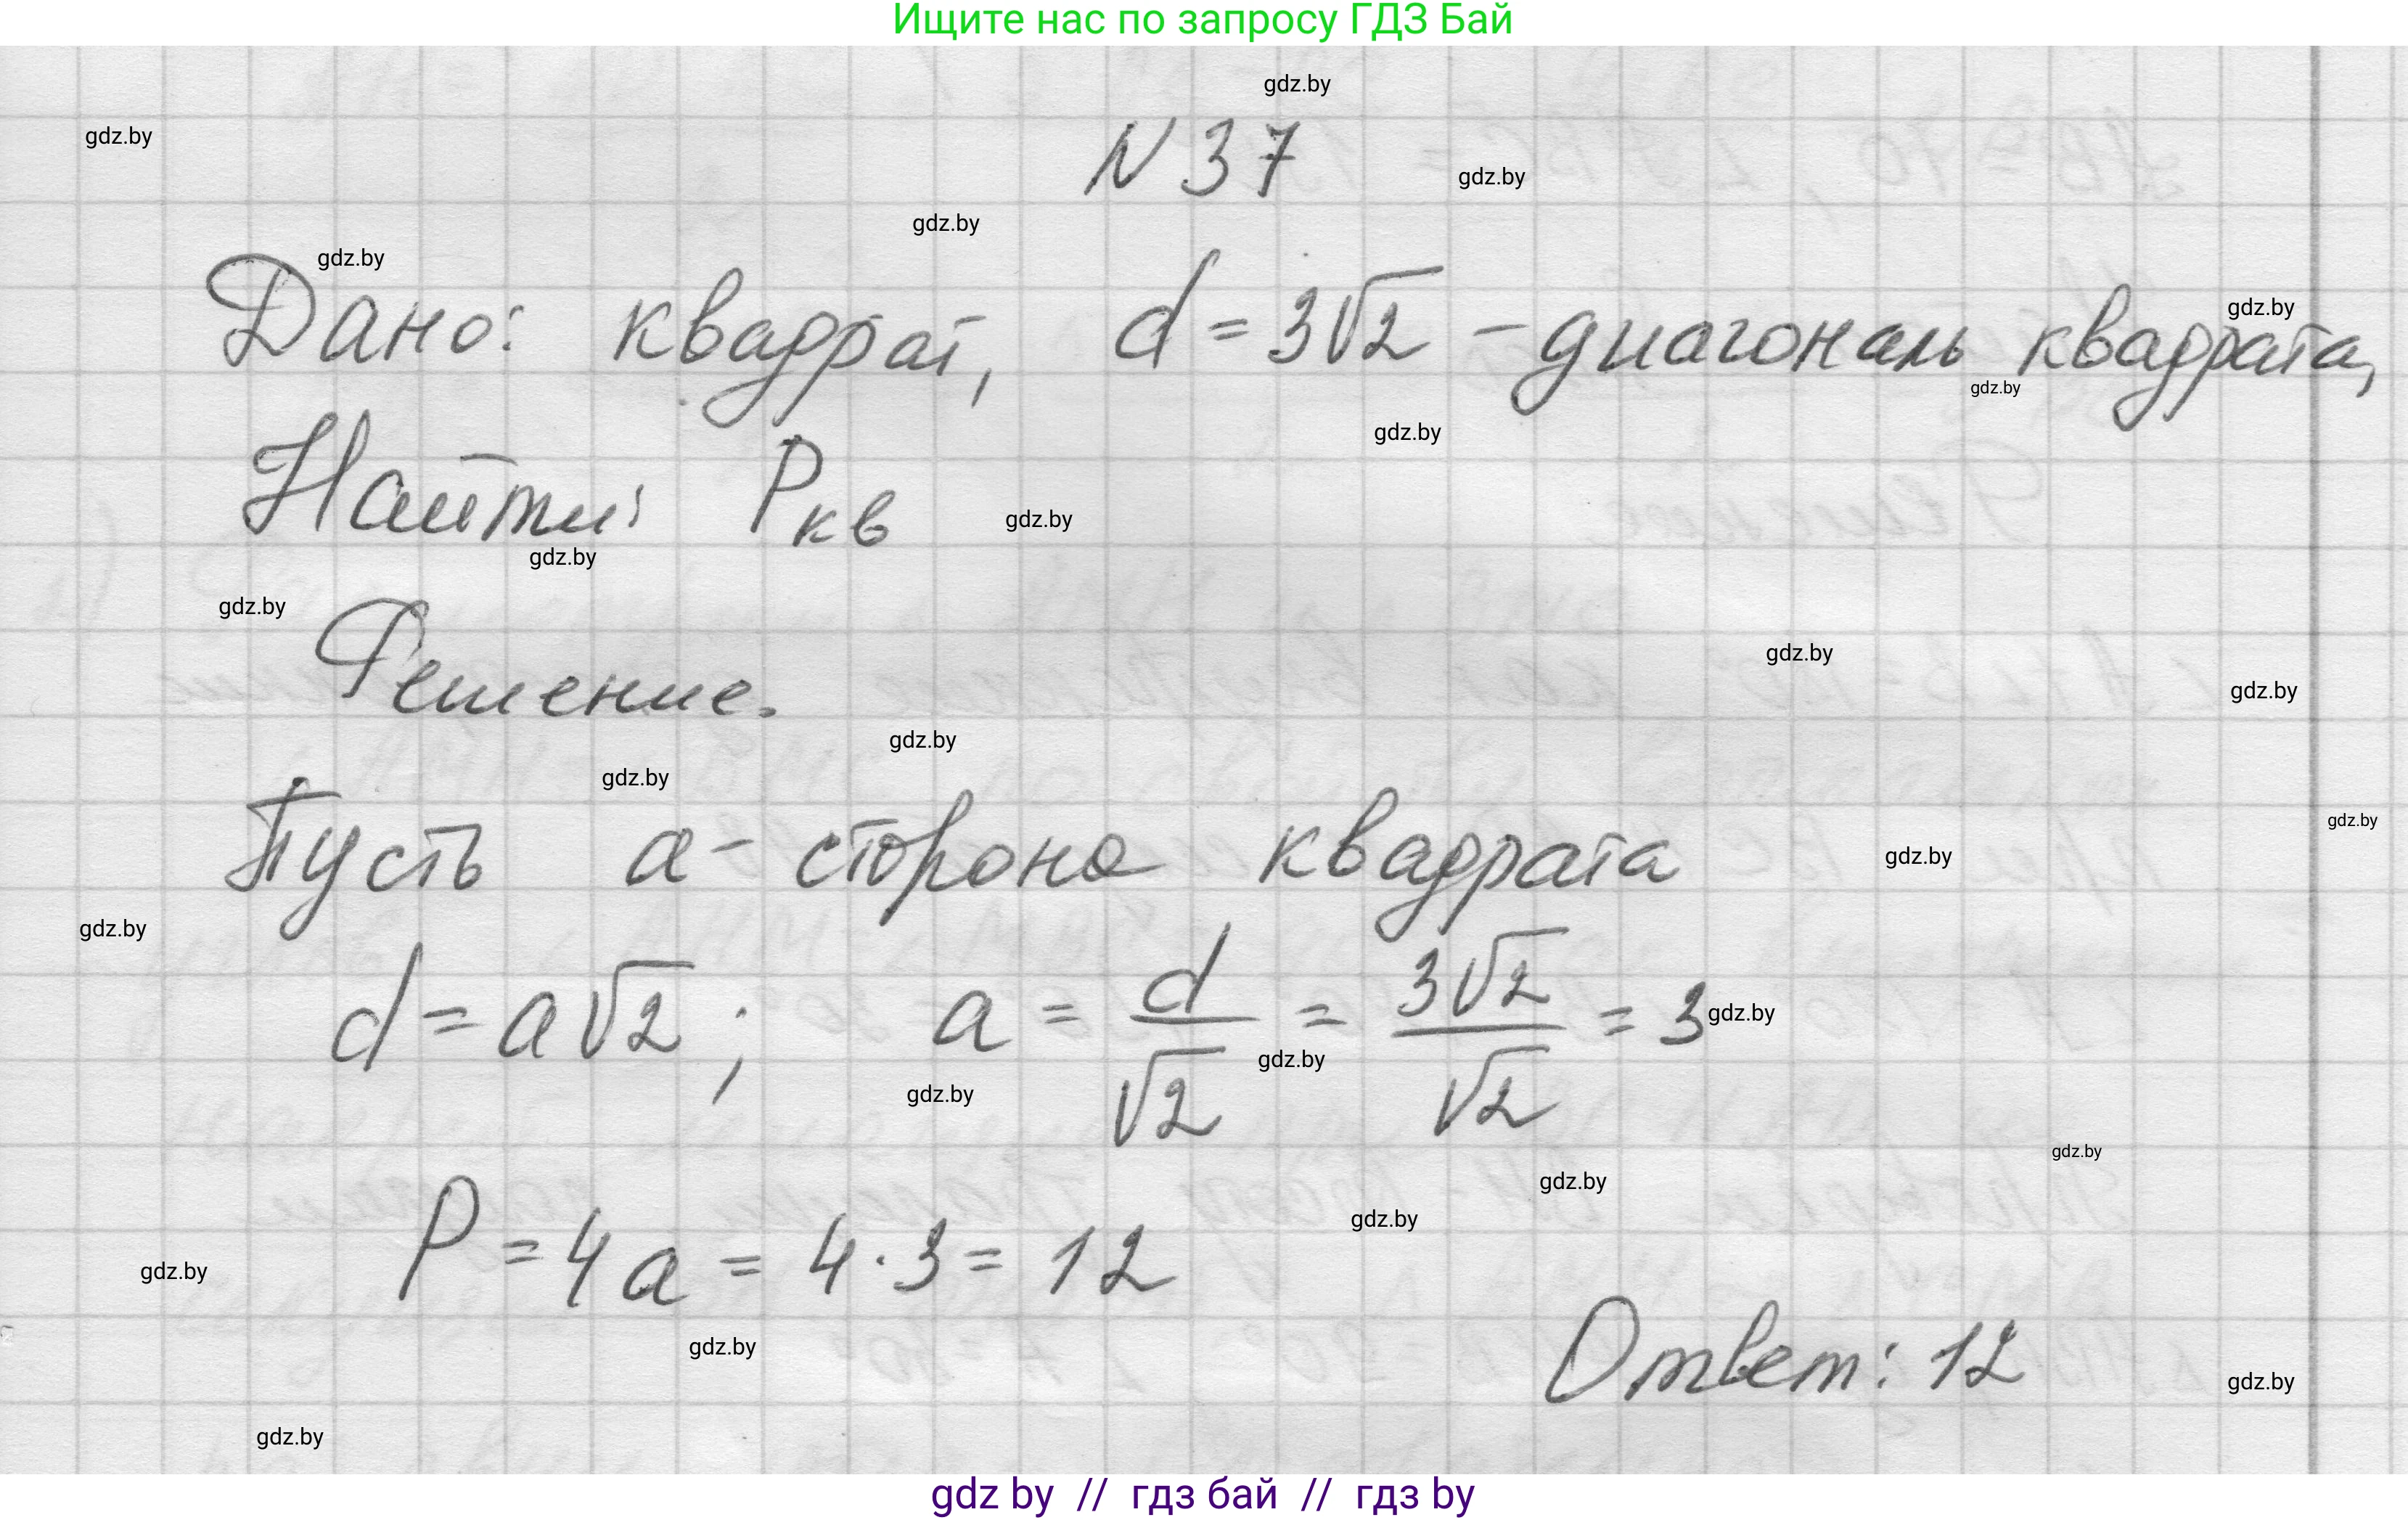 Ищите нас по запросу ГДЗ Бай
gdz.by
gdz.by
N 37
gdz.by
gdz.by
gdz.by
gdz.by
Дано: квадрат, d = 3√2 - диагональ квадрата,
gdz.by
gdz.by
Найти: Pкв
gdz.by
gdz.by
gdz.by
Решение.
gdz.by
gdz.by
gdz.by
gdz.by
gdz.by
Пусть a - сторона квадрата
gdz.by
gdz.by
d = a√2 ; a = d/√2 = 3√2/√2 = 3
gdz.by
gdz.by
gdz.by
gdz.by
gdz.by
gdz.by
P = 4a = 4 · 3 = 12
gdz.by
gdz.by
Ответ: 12
gdz.by
gdz.by
gdz by // гдз бай // гдз by